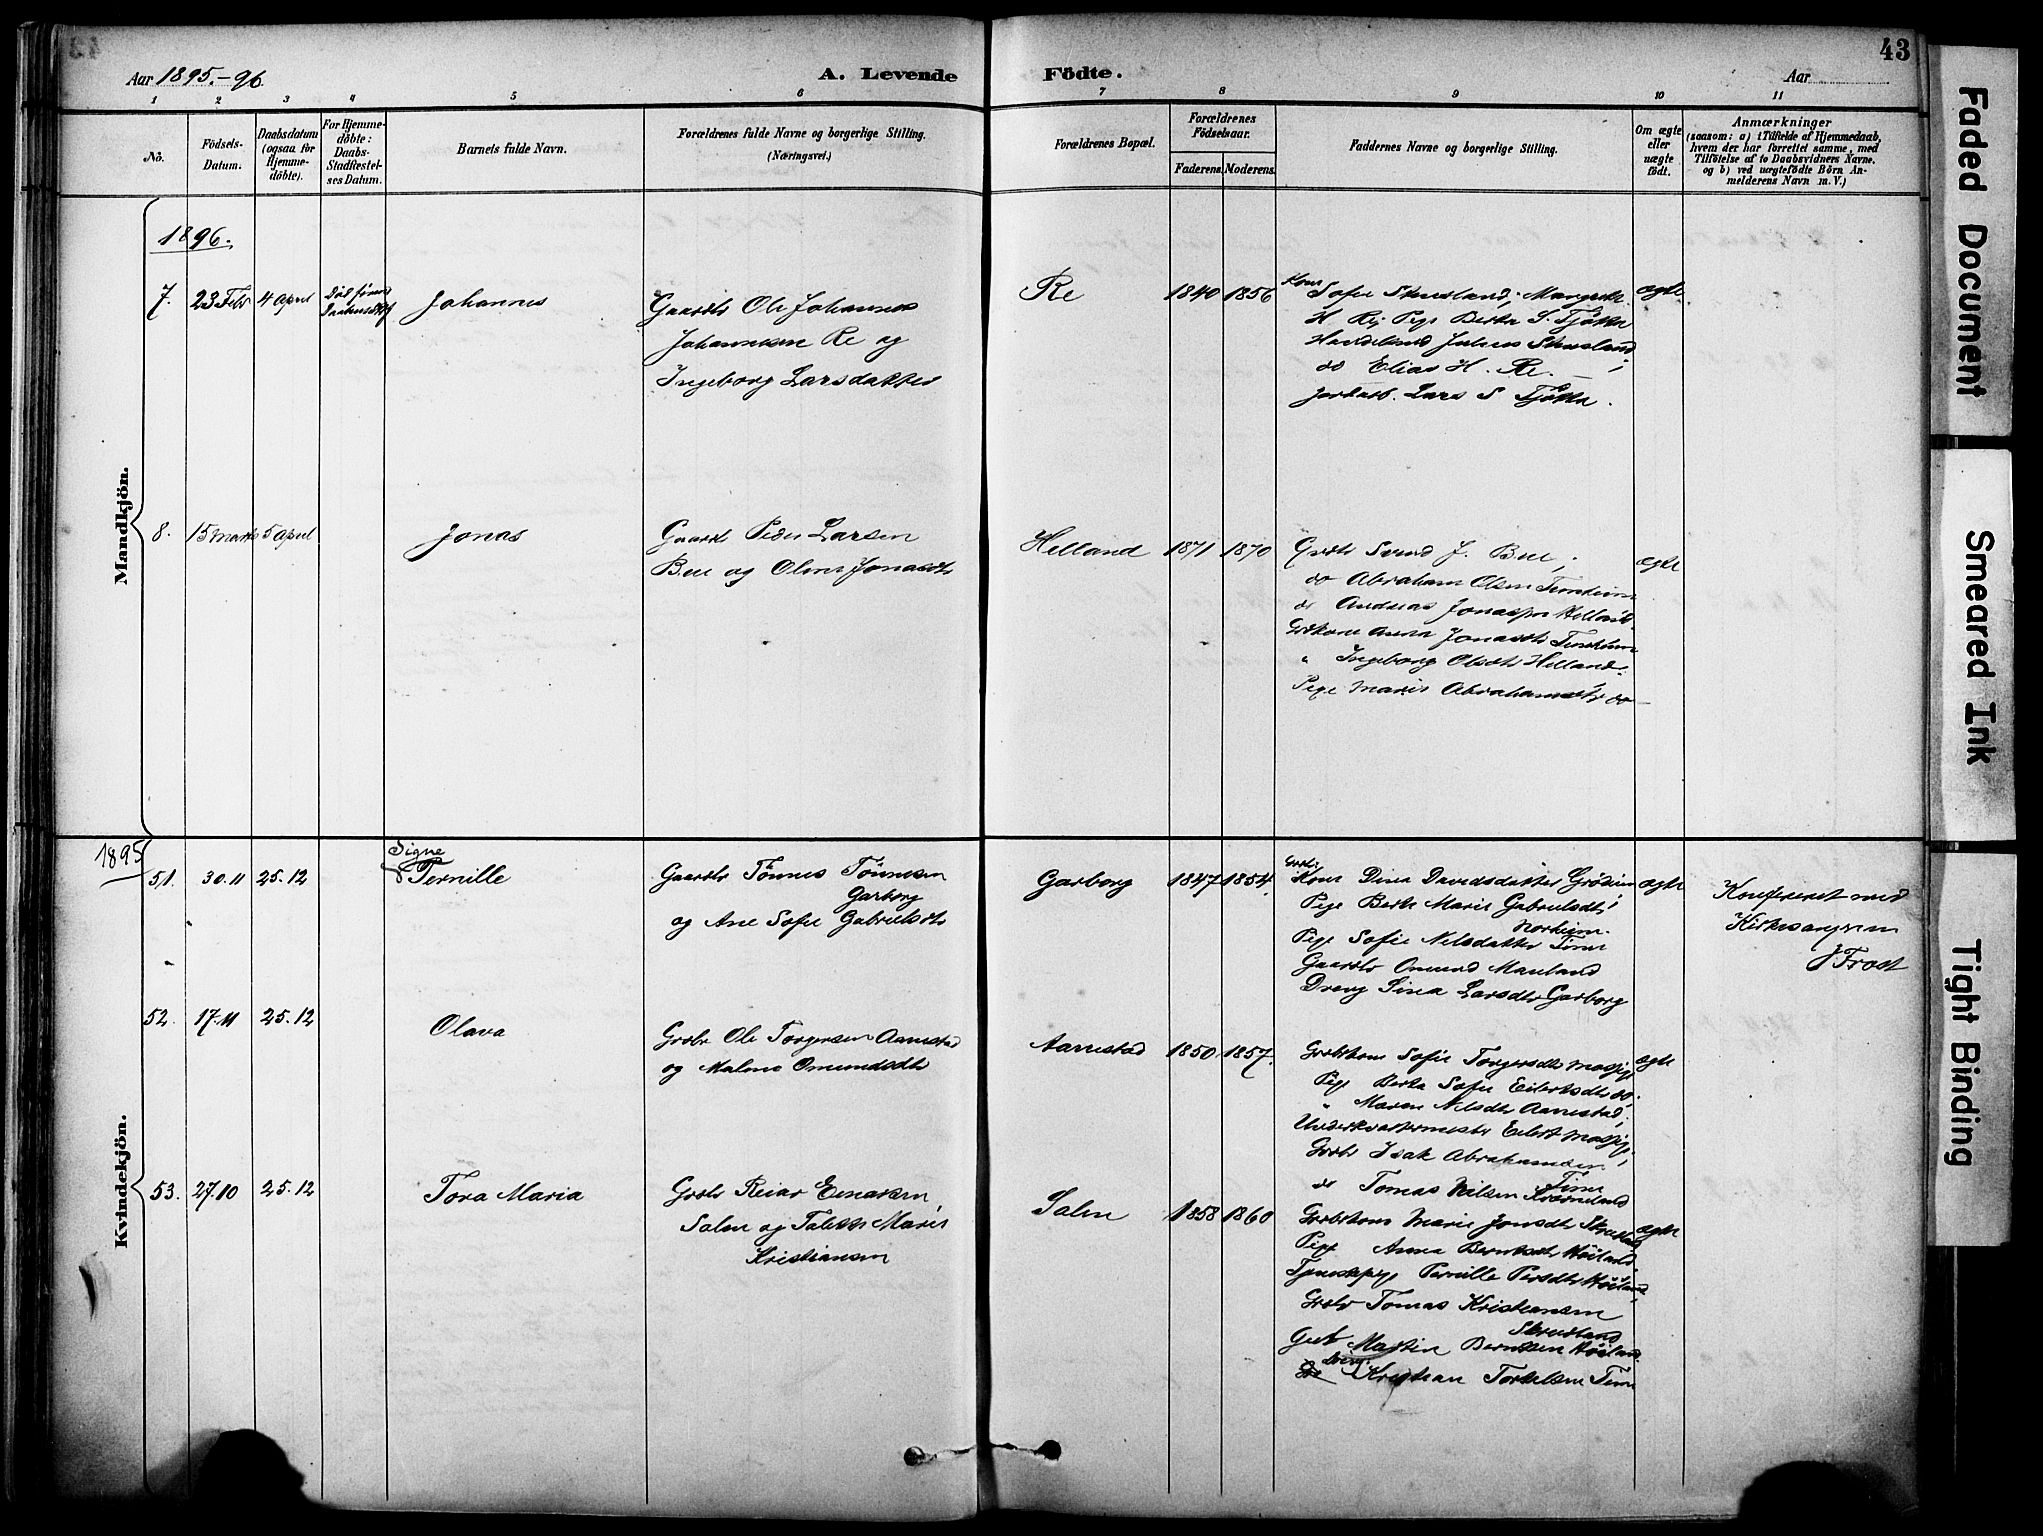 43
Aar 1895.-96.
A. Levende Födte.
Aar
1 2 3 4 5 6 7 8 9 10 11
No.
Födsels-Datum.
Daabsdatum (ogsaa for Hjemme-döbte).
For Hjemme-döbte: Daabs-Stadfæstel-ses Datum.
Barnets fulde Navn.
Forældrenes fulde Navne og borgerlige Stilling. (Næringsvei.)
Forældrenes Bopæl.
Forældrenes Födselsaar.
Faderens. Moderens.
Faddernes Navne og borgerlige Stilling.
Om ægte eller uægte födt.
Anmærkninger
(saasom: a) i Tilfælde af Hjemmedaab, hvem der har forrettet samme, med Tilföielse af to Daabsvidners Navne, og b) ved uægtefödte Börn An-melderens Navn m. V.)
Mandkjön.
1896.
7. 23 Febr 4 april
Johannes
Gaardbr Ole Johannes
Johannesen Re og
Ingeborg Larsdatter
Re 1840 1856
Kone Sofie Skrudland; Margrete
H Re; Pige Berta S. Tjøtta
Julius Skrudland;
do Elias H. Re.
Lars S Tjøtta.
ægte
8. 15 Marts 5 april
Jonas
Gaardbr Peder Larsen
Bue og Oline Jonasdtr
Helland 1871 1870
Grdbr Svend J. Bue;
do Abraham Olsen
do Andreas Jonassen Helland
Grdkone Anna Jonasdtr
" Ingeborg Olsdtr Helland
Pige Marie Abrahamsdtr do
ægte
Kvindekjön.
1895
51. 30.11 25.12
Signe
Pernille
Gaardbr Tönnes Tönnesen
Garborg
og Ane Sofie Gabrielsdtr
Garborg 1847 1854.
Grdbr:
Kone Dina Davidsdatter Gröteim
Pige Berte Marie Gabrielsdtr
Norheim.
Pige Sofie Nilsdatter Time
Gaardbr Omund Mauland
Dreng Sina Larsdtr Garborg
ægte
Konfereret med
Kirkesangeren
J Frost
52. 17.11 25.12
Olava
Grdbr Ole Torgersen Aarrestad
og Malene Omundsdtr
Aarrestad 1850. 1857.
Grdbrkone Sofie Torgersdtr Mossige
Pige Berta Sofie Eilertsdtr do;
" Maren Nilsdtr Aarrestad;
Underkvartermester Eilert Mossige;
Grdbr Isak Abrahamsen
Time
do Tomas Nilsen
ægte
53. 27.10 25.12
Tora Maria
Grdbr Reiar Einarsen
Salen og Talette Marie
Kristiansen
Salen 1858 1860
Grdbrkone Marie Jonsdtr
Pige Anna Berntsdtr Höiland.
Tjenestepige Pernille Persdtr Höiland
Grdbr Tomas Kristiansen
Skrudland
Gut Martin Berntsen Höiland.
Dreng Kristian Torkelsen Time
ægte
Faded Document
Smeared Ink
Tight Binding